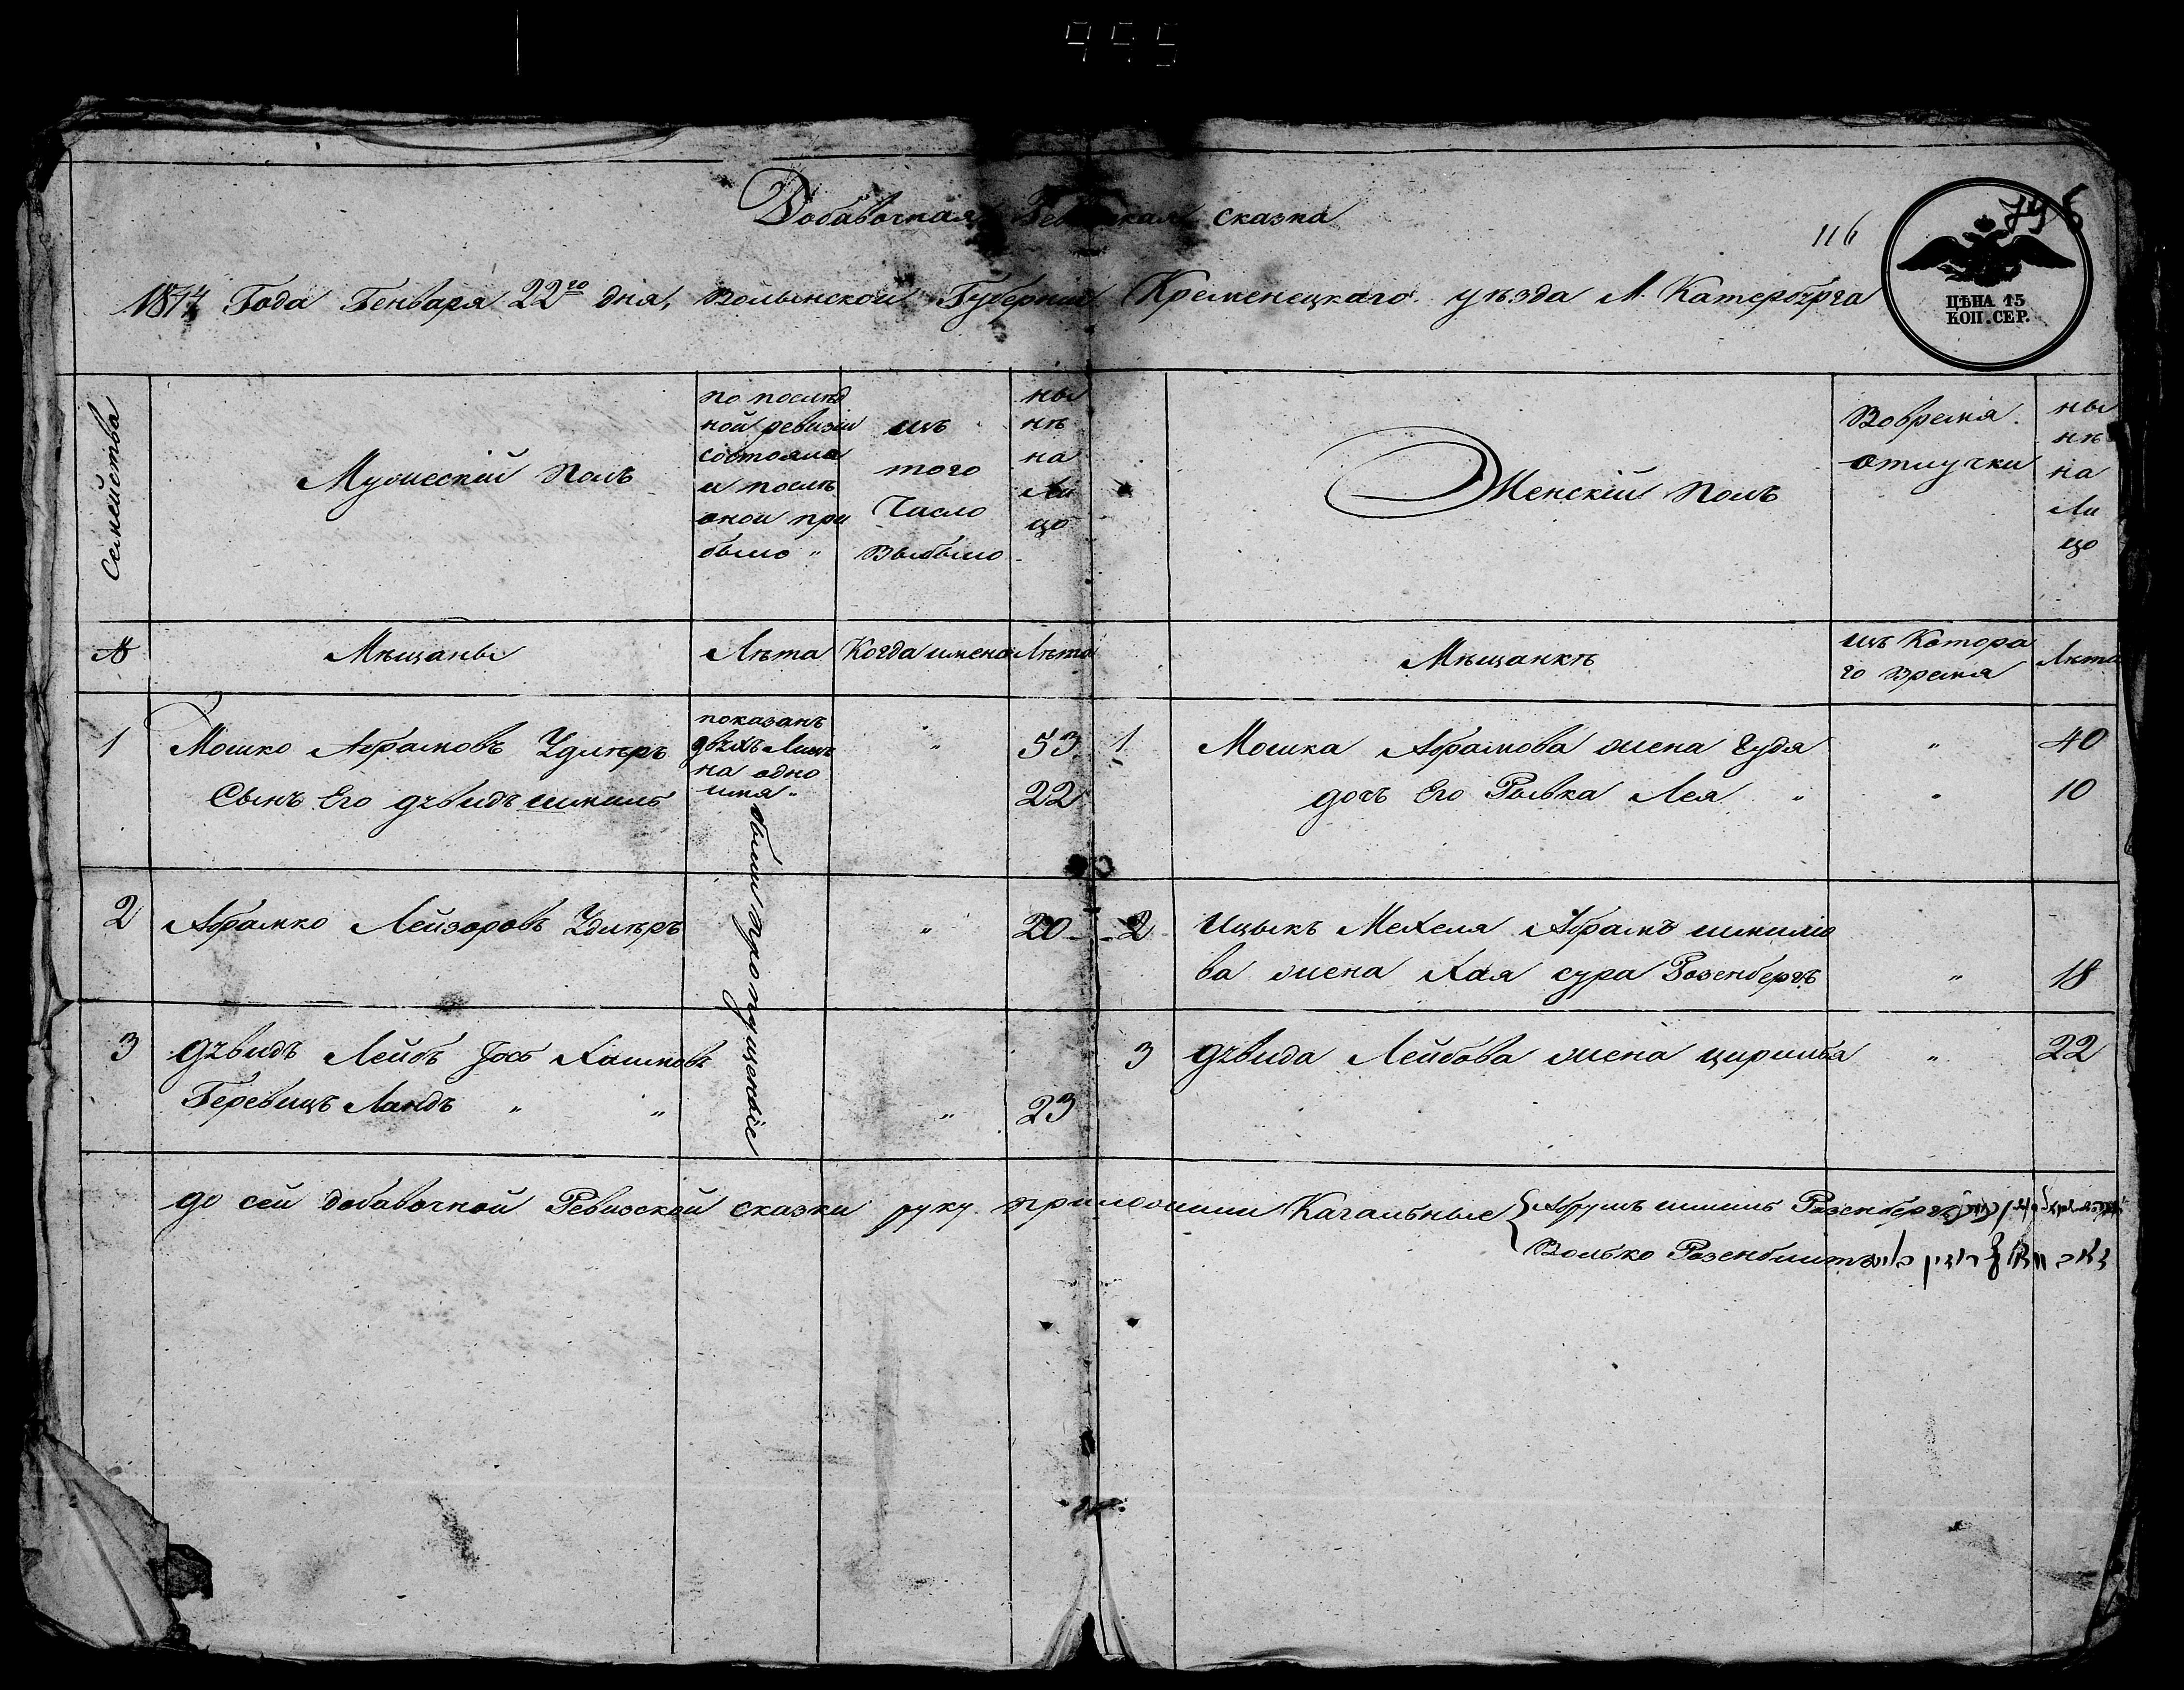 995
Добавочная Ревизская сказка
116
795
ЦѢНА 15
КОП. СЕР.
Года Генваря 22го дня, Волынской Губернии Кременецкаго уѣзда М. Катербурга
Семейства
Мужескій полъ
по послѣд
ной ревизіи
состояло
и послѣ
оной при
было "
изъ
того
Число
Выбыло
ны
нѣ
на
Ли
цо
Женскій полъ
Во время
отлучки
ны
нѣ
на
Ли
цо
№
Мѣщаны
Лѣта
Когда имено
Лѣта
Мѣщанкѣ
изъ Котора
го время
Лѣта
1 Мошко Абрамовъ Удлѣръ " 53
Сынъ Его Дувидъ Шмиль " 22
показанъ
двухъ Лицъ
на одно
имя "
были пропущенные
1 Мошка Абрамова жена Гудя " 40
дочь Его Рывка Лея " " 10
2 Абрамко Лейзоровъ Удлѣръ " 20
2 Ицыкъ Мехеля Абрамъ Шмилю
ва жена Хая сура Розенбергъ " 18
3 Дувидъ Лейбъ Иось Хаимовъ
Геревицъ Ландъ " " " 23
3 Дувида Лейбова жена цирильa " 22
до сей добавочной Ревизской сказки руку приложили Кагальные Абрумъ шмиль Розенбергъ
Волько Розенблитъ